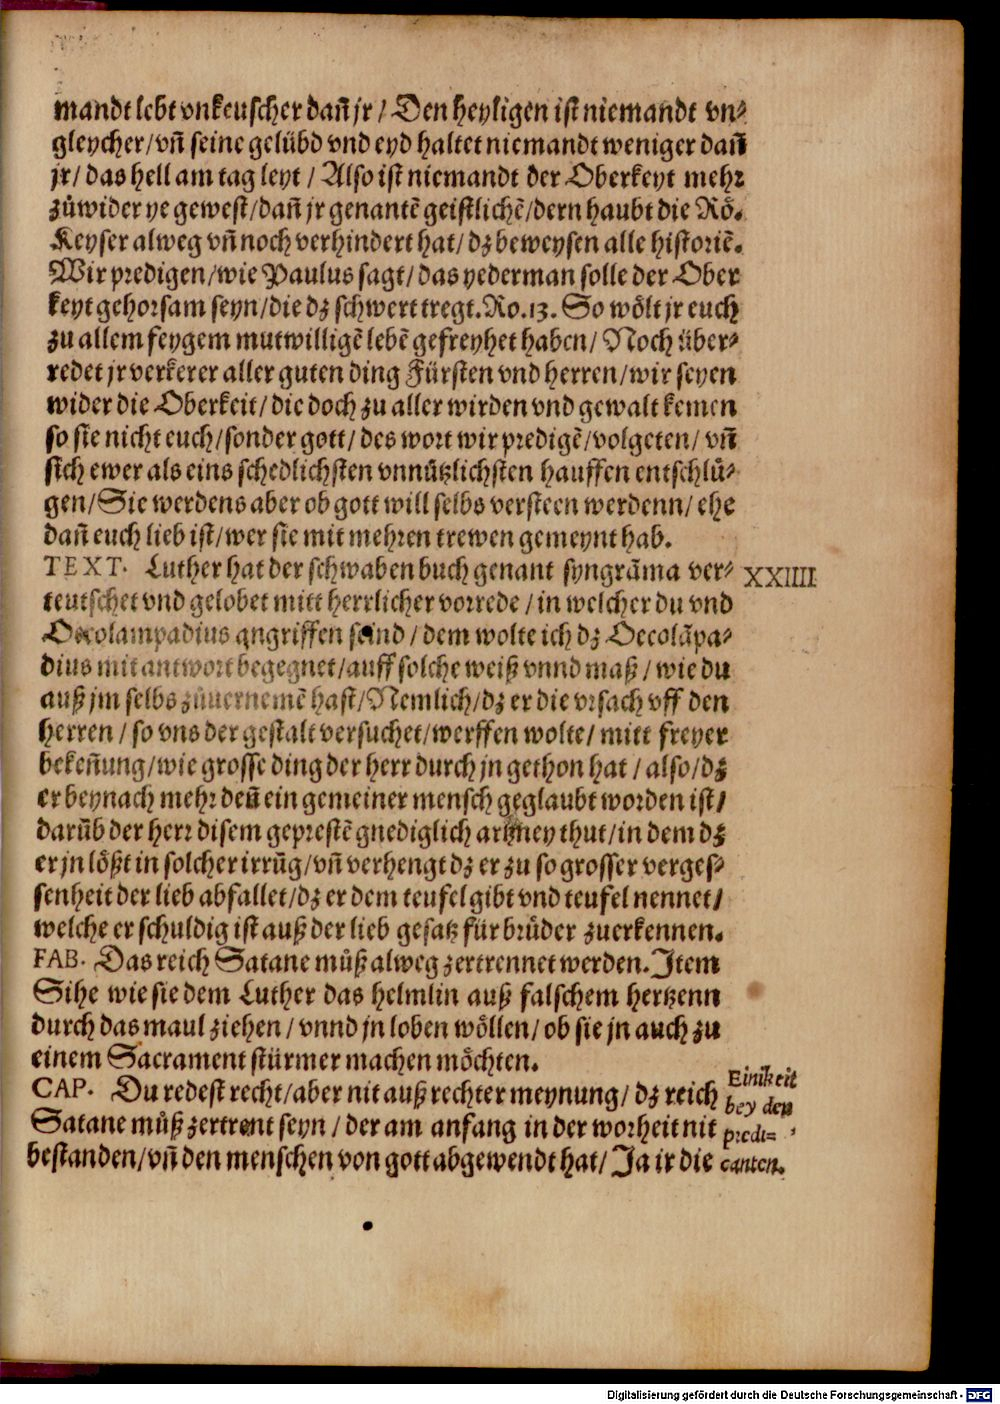 mandt lebt vnkeuscher dañ jr / Den heyligen ist niemandt vn-
gleycher/vñ seine gelübd vnd eyd haltet niemandt weniger dañ
jr/ das hell am tag leyt / Also ist niemandt der Oberkeyt mehr
zůwider ye gewest/dañ jr genantē geistlichē/dern haubt die Rö.
Keyser alweg vñ noch verhindert hat/ dz beweysen alle historiē.
Wir predigen/wie Paulus sagt/das yederman solle der Ober
keyt gehorsam seyn/die dz schwert tregt.Ro.13. So wölt jr euch
zu allem feygem mutwilligē lebē gefreyhet haben/ Noch über-
redet jr verkerer aller guten ding Fürsten vnd herren/wir seyen
wider die Oberkeit/die doch zu aller wirden vnd gewalt kemen
so sie nicht euch/sonder gott/des wort wir predigē/volgeten/ vñ
sich ewer als eins schedlichsten vnnützlichsten hauffen entschlü-
gen/Sie werdens aber ob gott will selbs versteen werdenn/ ehe
dañ euch lieb ist/wer sie mit mehren trewen gemeynt hab.
TEXT. Luther hat der schwaben buch genant syngrāma ver-
XXIIII
teutschet vnd gelobet mitt herrlicher vorrede / in welcher du vnd
Oecolampadius angriffen seind / dem wolte ich dz Oecolāpa-
dius mit antwort begegnet/auff solche weiß vnnd maß / wie du
auß jm selbs zůuernemē hast/Nemlich/dz er die vrsach vff den
herren / so vns der gestalt versuchet/werffen wolte/ mitt freyer
bekeñung/wie grosse ding der herr durch jn gethon hat / also/dz
er beynach mehr deñ ein gemeiner mensch geglaubt worden ist/
darūb der herr disem geprestē gnediglich artzney thut/in dem dz
er jn lößt in solcher irrūg/vñ verhengt dz er zu so grosser verges-
senheit der lieb abfallet/dz er dem teufel gibt vnd teufel nennet/
welche er schuldig ist auß der lieb gesatz für brüder zuerkennen.
FAB. Das reich Satane můß alweg zertrennet werden. Item
Sihe wie sie dem Luther das helmlin auß falschem hertzenn
durch das maul ziehen / vnnd jn loben wöllen/ ob sie jn auch zu
einem Sacrament stürmer machen möchten.
CAP. Du redest recht/aber nit auß rechter meynung/ dz reich
Satane můß zertrent seyn / der am anfang in der worheit nit
bestanden/vñ den menschen von gott abgewendt hat/ Ja ir die
Einikeit
bey den
predi=
canten.
Digitalisierung gefördert durch die Deutsche Forschungsgemeinschaft - DFG